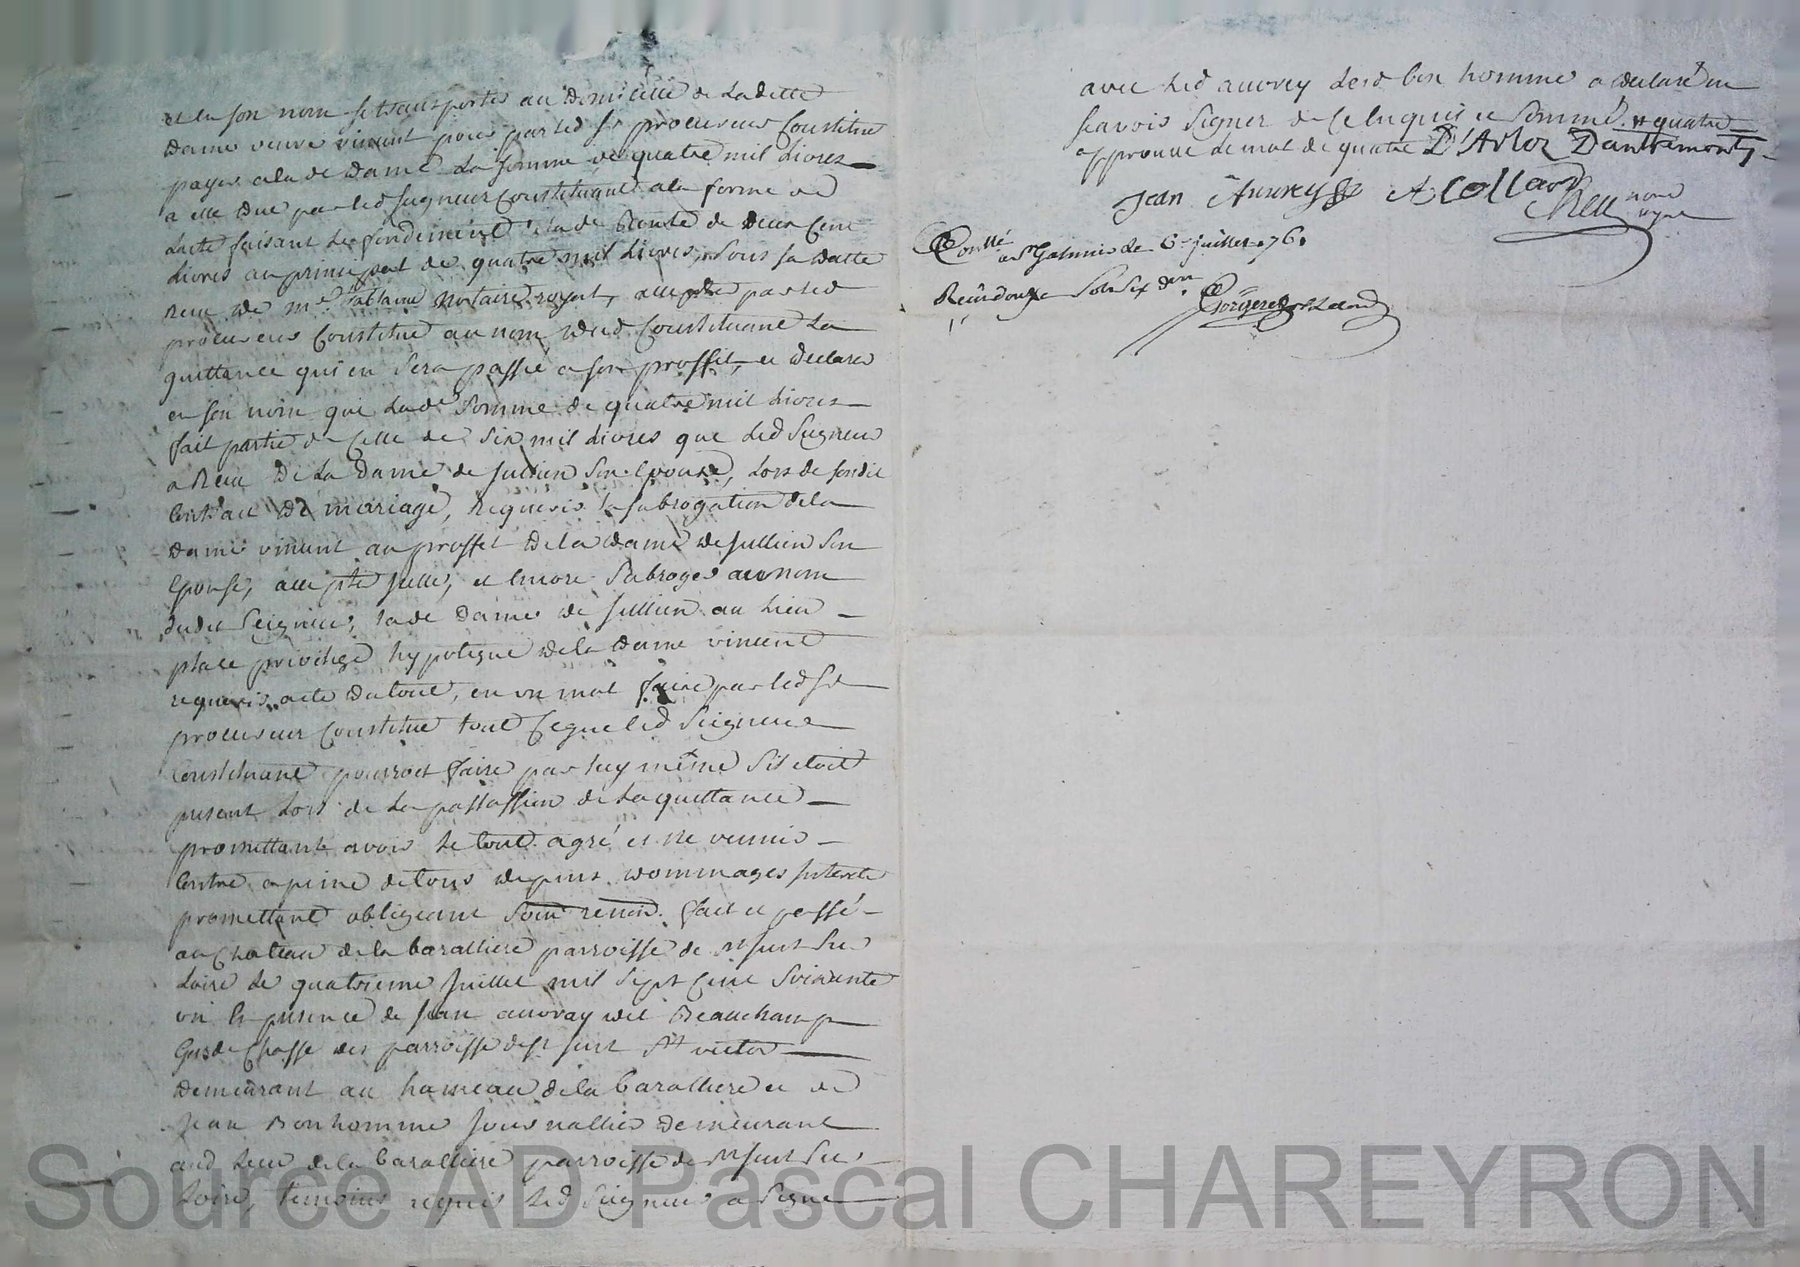 et en son nom se transporter au domicille de Ladette
dame veuve vincent pour par led sr procureur Constitué
payer a lade Dame La somme de quatre mil Livres
a elle due par led seigneur Constituant a la forme de
Lacte faisant le fondement de lade Rente de deux Cent
Livres au principal de quatre mil Livres, sous sa datte
Recu de me notaire royal, accepter par led
procureur Constitué au nom dud Constituant La
quittance qui en sera passée a son proffit, et declarer
en son nom que Lade somme de quatre mil Livres
fait partie de Celle de six mil Livres que led seigneur
a Recu De La dame de Jullien son epouse, Lors de sondit
Contract De mariage, requerir la subrogation de la
dame vincent au proffit de la dame de Jullien son
epouse, accepter jcelle, et encore subroger au nom
dudit seigneur, lade dame de Jullien au Lieu
place privilege hypoteque de la dame vincent
requerir acte du tout, en un mot faire par led sr
procureur Constitué tout Ce que led seigneur
Constituant pourroit faire par luy même s'il etoit
present Lors de la passassion de La quittance
promettant avoir le tout agré et ne venir
Contre a peine de tous depens dommages interets
promettant obligeant soum renon. fait et passé
au Chateau de la baralliere parroisse de st just sur
Loire le quatrieme Juillet mil sept Cent soixante
un En presence de Jean auvray dit Beauchamp
Garde Chasse des parroisse de st just st victor
demeurant au hameau de la baralliere et de
Jean Bonhomme Journallier demeurant
aud Lieu de la baralliere parroisse de st just sur
Loire, temoins requis led seigneur a signé
avec Led auvrey Led bon homme a declaré ne
scavoir signer de Ce enquis et sommé quatre
approuvé le mot de quatre D'Arloz Dantremont
Jean Auvrey A Collard
Conllé a st Galmier le 6e juillet 1761
Recu douze sols six den
Source AD Pascal CHAREYRON